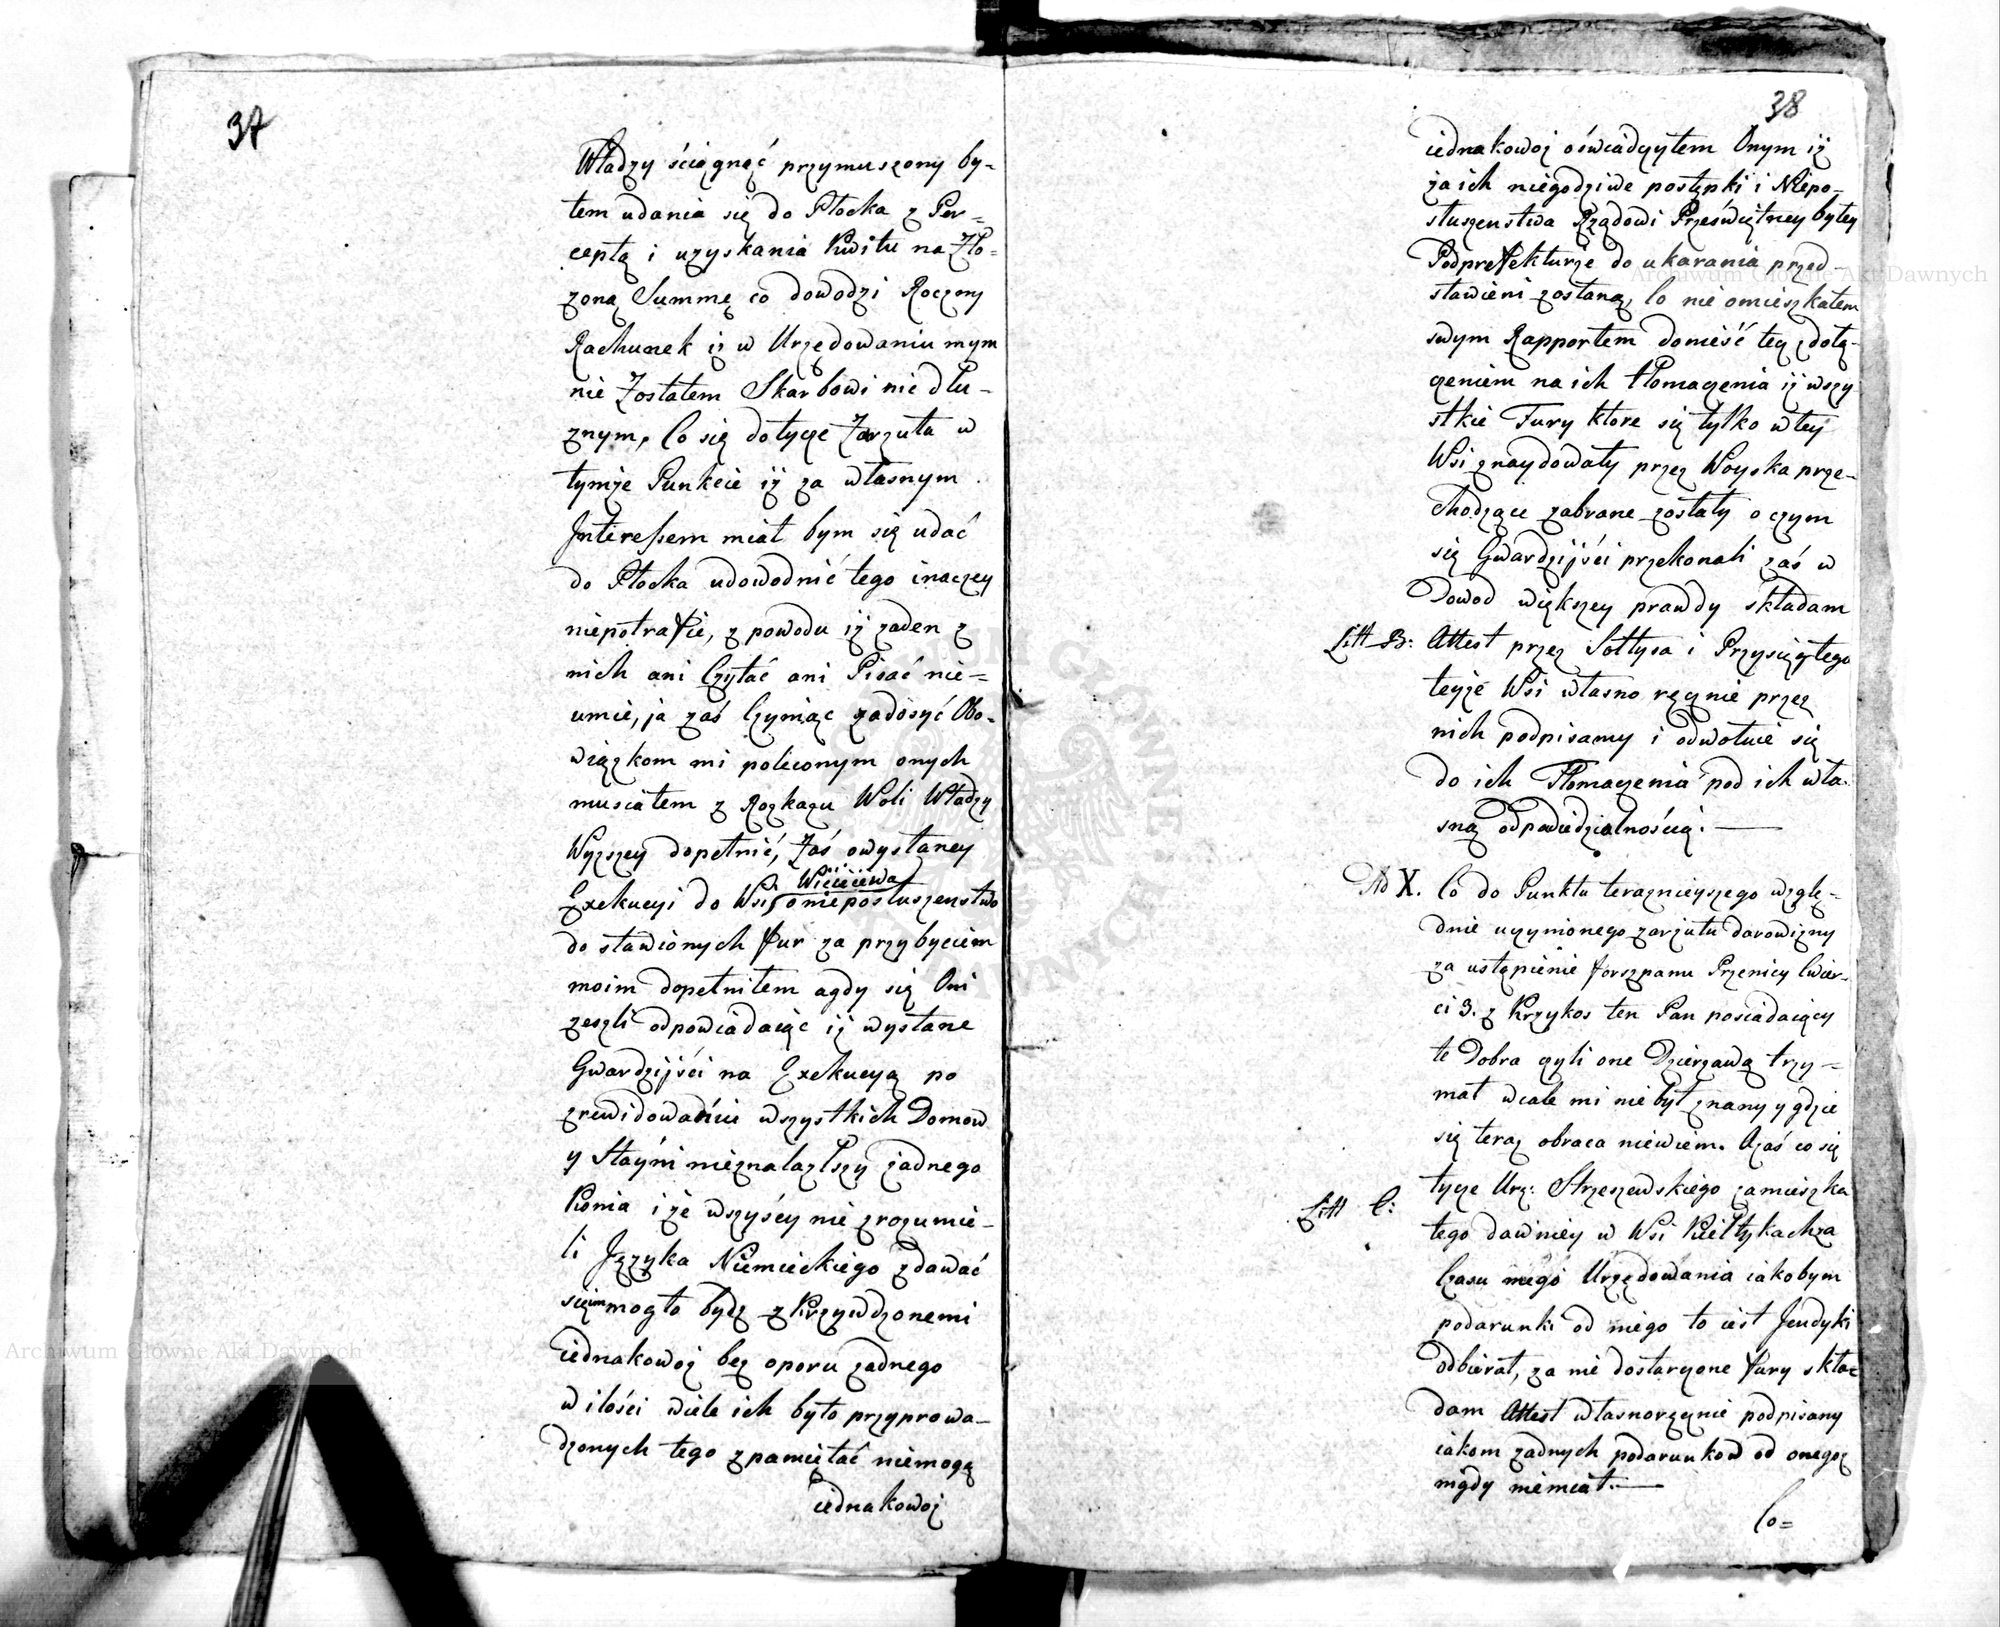 37
Władzy ściągnąć przymuszony by-
tem udania się do Płocka z Per=
ceptą i uzyskania Kwitu na Zło=
zoną Summę co dowodzi Roczny
Rachunek iz w Urzędowaniu mym
nie Zostałem Skarbowi nie dłu-
znym, Co się dotycze Zarzutu w
tymże Punkcie iż za własnym
Interessem miał bym się udać
do Płocka udowodnić tego inaczey
niepotrafie, z powodu iż zaden z
nich ani Czytać ani Pisać nie=
umie, ja zaś Czyniąc zadosyć Obo-
wiązkom mi poleconym onych
musiałem z Rozkazu Woli Władzy
Wyzszey dopełnić, Zaś owysłaney
Wiciejewa
Exekucyi do Wsi onieposłuszenstwo
do stawionych fur za przybyciem
moim dopełniłem agdy się Oni
zeszli odpowiadaiąc iż wysłane
Gwardzijści na Exekucyą po
zrewidowaniu wszystkich Domow
y Stayni nieznalazłszy żadnego
Konia i że wszyścy nie zrozumie-
li Języka Niemieckiego zdawać
się im mogło bydz z Krzywdzonemi
iednakowoż bez oporu zadnego
w ilości wiele ich było przyprowa-
dzonych tego zpamiętać niemogę
iednakowoż
38
iednakowoż oświadczyłem Onym iż
za ich niegodziwe postępki i Niepo-
słuszenstwa Rządowi Prześwietney byłey
Podprefekturze do ukarania przed-
stawieni zostaną, Co nie omieszkałem
swym Rapportem donieść też z dołą-
czeniem na ich tłomaczenia iż wszy-
stkie Fury ktore się tylko w tey
Wsi znaydowały przez Woyska prze-
chodzące zabrane zostały o czym
się Gwardzijści przekonali zaś w
Dowod większey prawdy składam
Litt B: Attest przez Sołtysa i Przysięgłego
teyże Wsi własno ręcznie przez
nich podpisamy i odwołuie się
do ich Tłomaczenia pod ich wła-
sną odpowiedzialnością.
Ad X. Co do Punktu teraznieyszego wzglę=
dnie uczynionego zarzutu darowizny
za ustąpienie forszpanu Przenicy Cwier-
ci 3. z Krzykos ten Pan posiadaiący
te Dobra czyli one Dzierzawą trzy=
mał wcale mi nie był znany y gdzie
się teraz obraca niewiem. Azaś co się
tycze Urz: Strzeszewskiego zamieszka
Litt C: tego dawniey w Wsi Kiełtykach za
Czasu mego Urzędowania iakobym
podarunki od niego to iest Jendyki
odbierał, za nie dostarczone fury skła=
dam Attest własnoręcznie podpisany
iakom zadnych podarunkow od onegoz
nigdy niemiał.
Co=
Archiwum Główne Akt Dawnych
Archiwum Główne Akt Dawnych